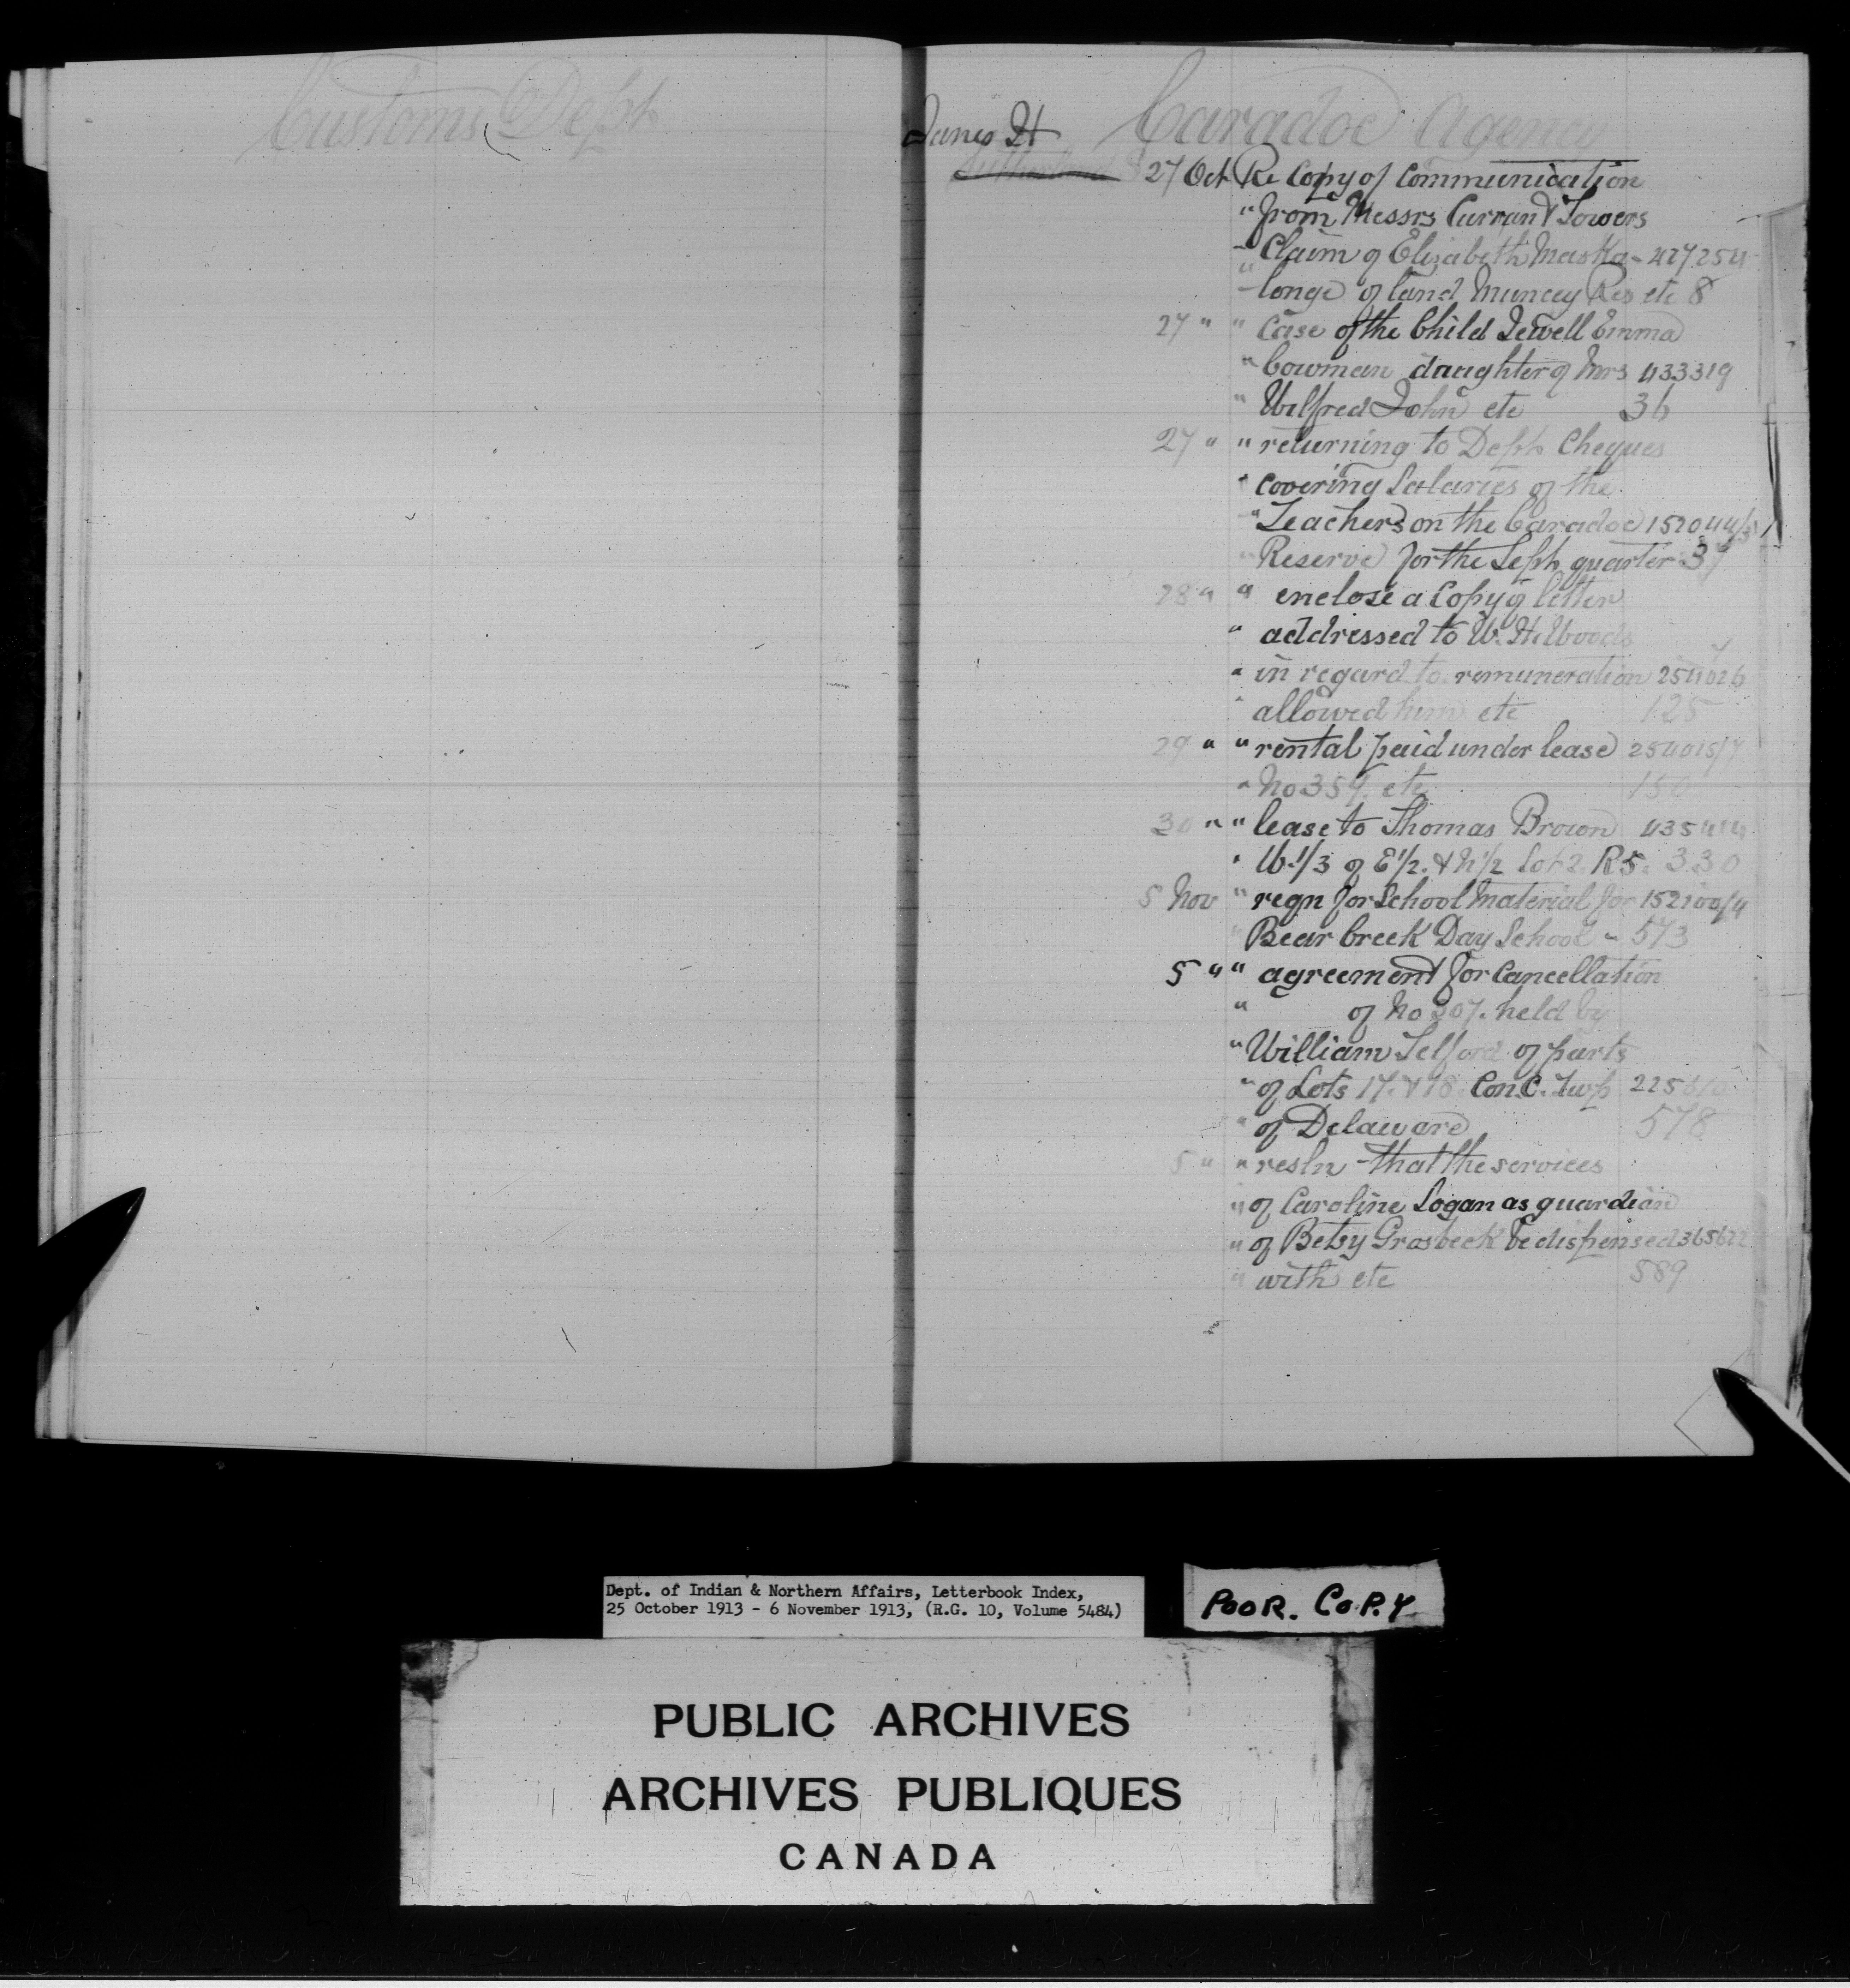 Customs Dept
Caradoc Agency
Janes H
Sutherland S
27 Oct Re Copy of Communication
" from Messrs Curran & Towers
" Claim of Elizabeth Maska- 427254
" longe of land Muncey Res etc 8
27 " " Case of the Child Jewell Emma
" Bowman daughter of Mrs 433319
" Wilfred John etc 36
27 " " returning to Dept Cheques
" covering Salaries of the
" Teachers on the Caradoc 152044/5
" Reserve for the Sept quarter 37
28 " " enclose a Copy of letter
" addressed to W. H. Woods
" in regard to remuneration 254026
" allowed him etc 125
29 " " rental paid under lease 254015/7
" No 359. etc 150
30 " " lease to Thomas Brown 435414
" W. 1/3 of E 1/2. & N 1/2 Lot 2. R 5. 330
5 Nov " reqn for School Material for 152100/4
" Bear Creek Day School - 573
5 " " agreement for Cancellation
" of No 307. held by
" William Telford of parts
" of Lots 17. & 18. Con. C. Twp 225610
" of Delaware 578
5 " " resln that the services
" of Caroline Logan as guardian
" of Betsy Grosbeck be dispensed 365622
" with etc 589
Dept. of Indian & Northern Affairs, Letterbook Index,
25 October 1913 - 6 November 1913, (R.G. 10, Volume 5484)
POOR. COPY
PUBLIC ARCHIVES
ARCHIVES PUBLIQUES
CANADA